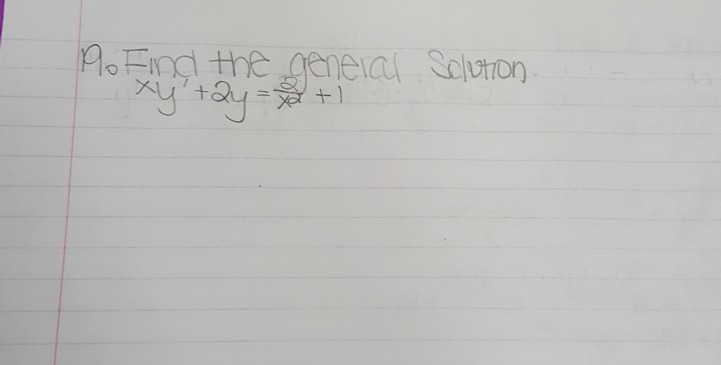 19. Find the general Solution.
xy' + 2y = 2/x2 + 1